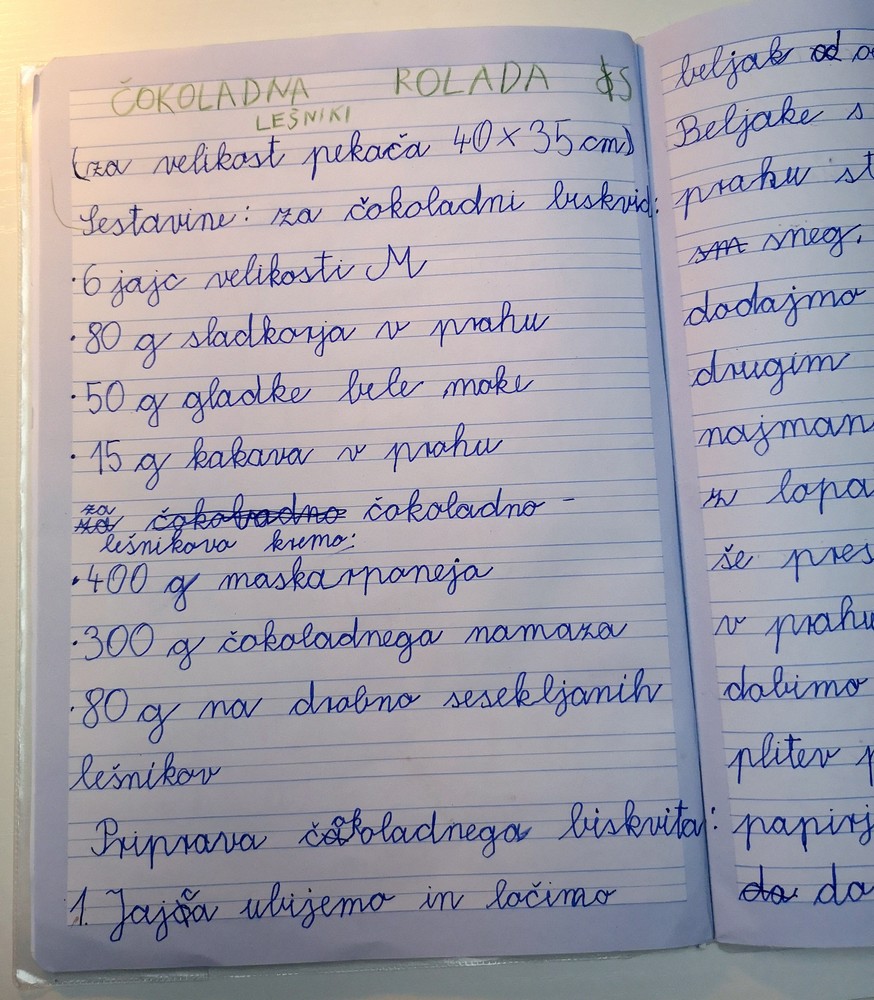 ČOKOLADNA ROLADA S
LEŠNIKI
(za velikost pekača 40 x 35 cm)
Sestavine: za čokoladni biskvid:
· 6 jajc velikosti M
· 80 g sladkorja v prahu
· 50 g gladke bele moke
· 15 g kakava v prahu
za čokoladno -
lešnikova kremo:
· 400 g maskarpaneja
· 300 g čokoladnega namaza
· 80 g na drobno sesekljanih
lešnikov
Priprava čokoladnega biskvita:
1. Jajča ubijemo in ločimo
beljak od
Beljake s
prahu st
sneg.
dodajmo
drugim
najman
lopa
še pres
v prahu
dobimo
plitev p
papirj
do